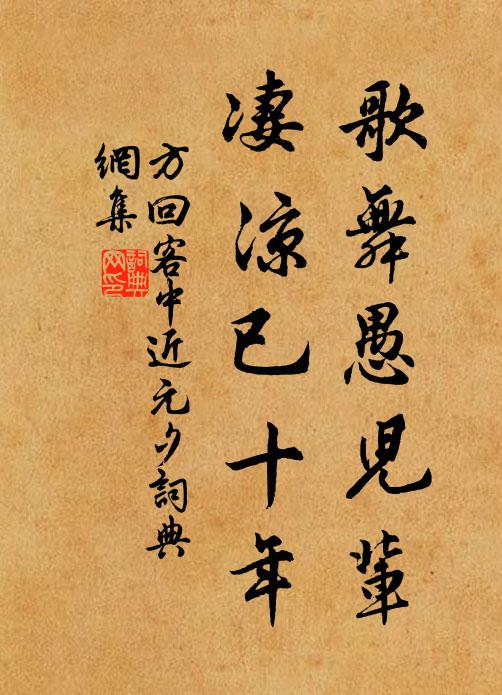 歌舞愚児輩
凄涼已十年
方回客中近元夕詞典
網集
詞典网印